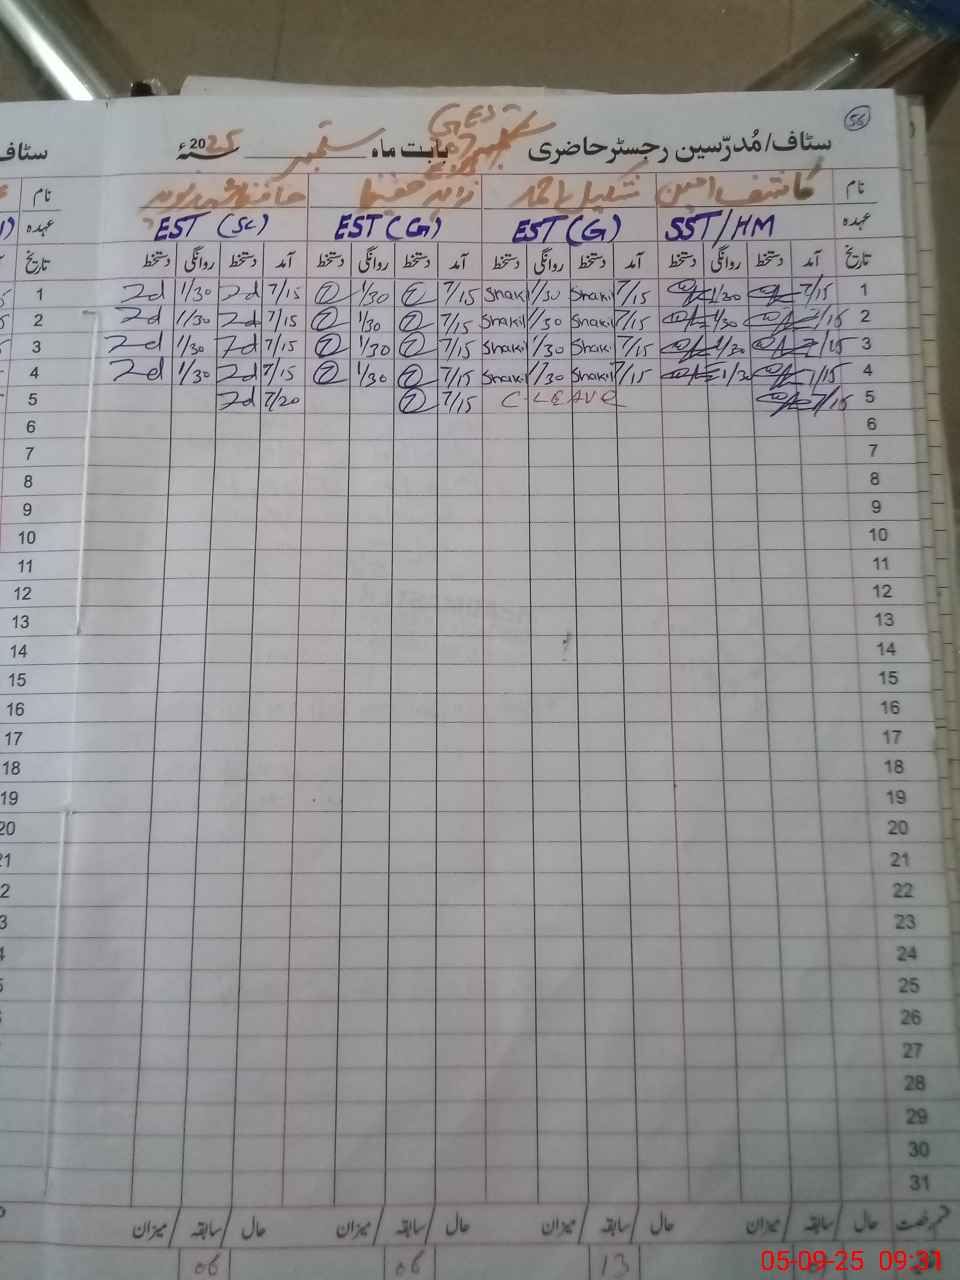 56
سٹاف/مُدرّسین رجسٹر حاضری بابت ماہ ستمبر سنہ 2025ء
سٹاف
نام کاشف امین شکیل احمد نام
عہدہ SST/HM EST(G) EST(G) EST(SC) عہدہ
تاریخ آمد دستخط روانگی دستخط آمد دستخط روانگی دستخط آمد دستخط روانگی دستخط آمد دستخط روانگی دستخط تاریخ
1 7/15 1/30 7/15 Shakil 1/30 Shakil 7/15 1/30 7/15 1/30 1
2 7/15 1/30 7/15 Shakil 1/30 Shakil 7/15 1/30 7/15 1/30 2
3 7/15 1/30 7/15 Shakil 1/30 Shakil 7/15 1/30 7/15 1/30 3
4 7/15 1/30 7/15 Shakil 1/30 Shakil 7/15 1/30 7/15 1/30 4
5 7/15 C LEAVE 7/15 7/20 5
6 6
7 7
8 8
9 9
10 10
11 11
12 12
13 13
14 14
15 15
16 16
17 17
18 18
19 19
20 20
21 21
22
23
24
25
26
27
28
29
30
31
حال / سابقہ / میزان حال / سابقہ / میزان حال / سابقہ / میزان حال / سابقہ / میزان
13 06 06
05-09-25 09:31